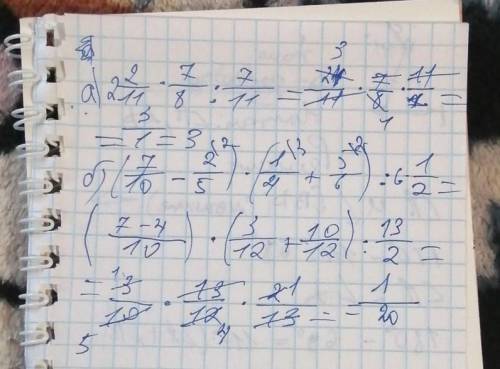 а) 2 2/11 · 7/8 : 7/11 = 24/11 · 7/8 · 11/7 =
= 3/1 = 3
б) (7/10 - 2/5 \2) · (1/4 \3 + 5/6 \2) : 6 1/2 =
((7-4)/10) · (3/12 + 10/12) : 13/2 =
= 3/10 · 13/12 · 21/13 = - 1/20